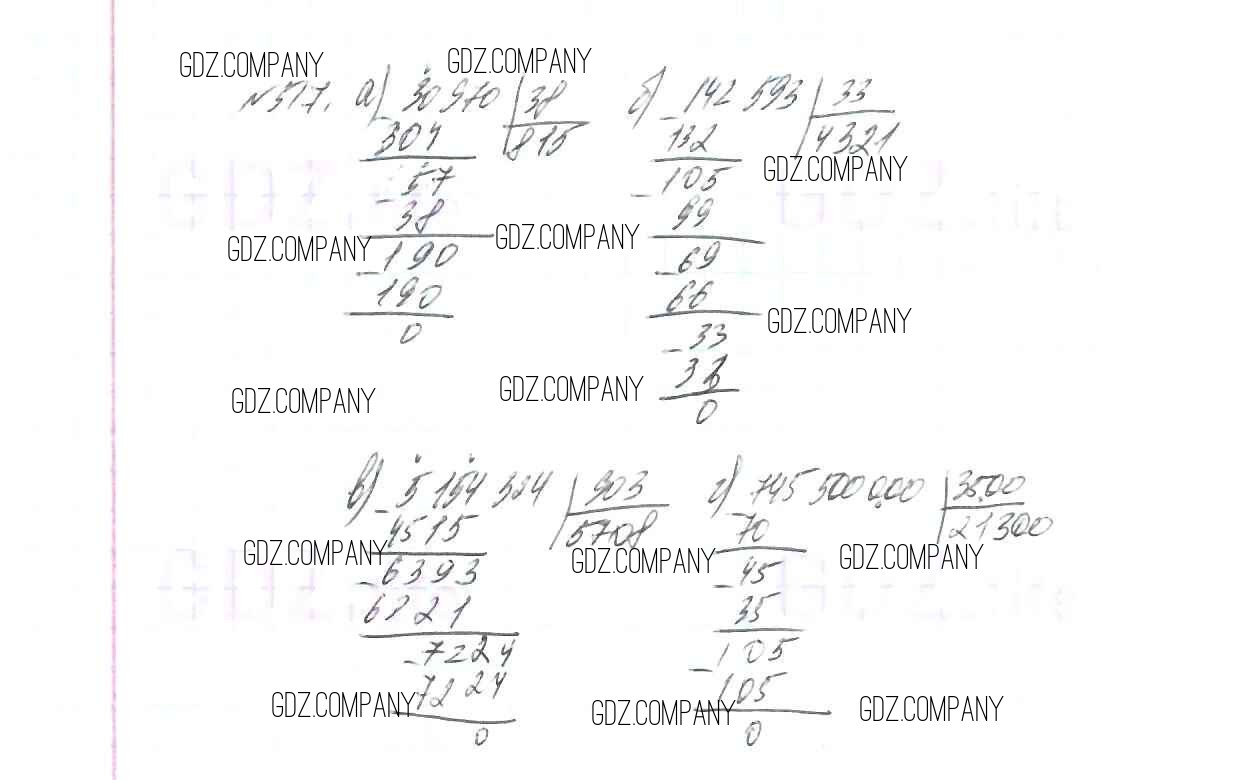 GDZ.COMPANY GDZ.COMPANY
№517. а) 30970 | 38 б) 142 593 | 33
304 815 132 4321
GDZ.COMPANY
57 105
38 99
GDZ.COMPANY GDZ.COMPANY
190 69
190 66
GDZ.COMPANY
0 33
33
GDZ.COMPANY GDZ.COMPANY
0
в) 5 154 324 | 903 г) 745 500 000 | 3500
4515 5708 70 21300
GDZ.COMPANY GDZ.COMPANY GDZ.COMPANY
6393 45
6321 35
7224 105
7224 105
GDZ.COMPANY GDZ.COMPANY GDZ.COMPANY
0 0